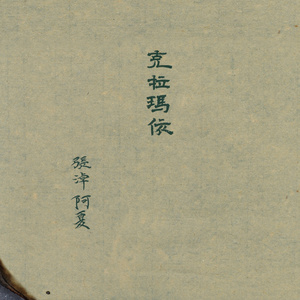 克拉瑪依
張津阿夏